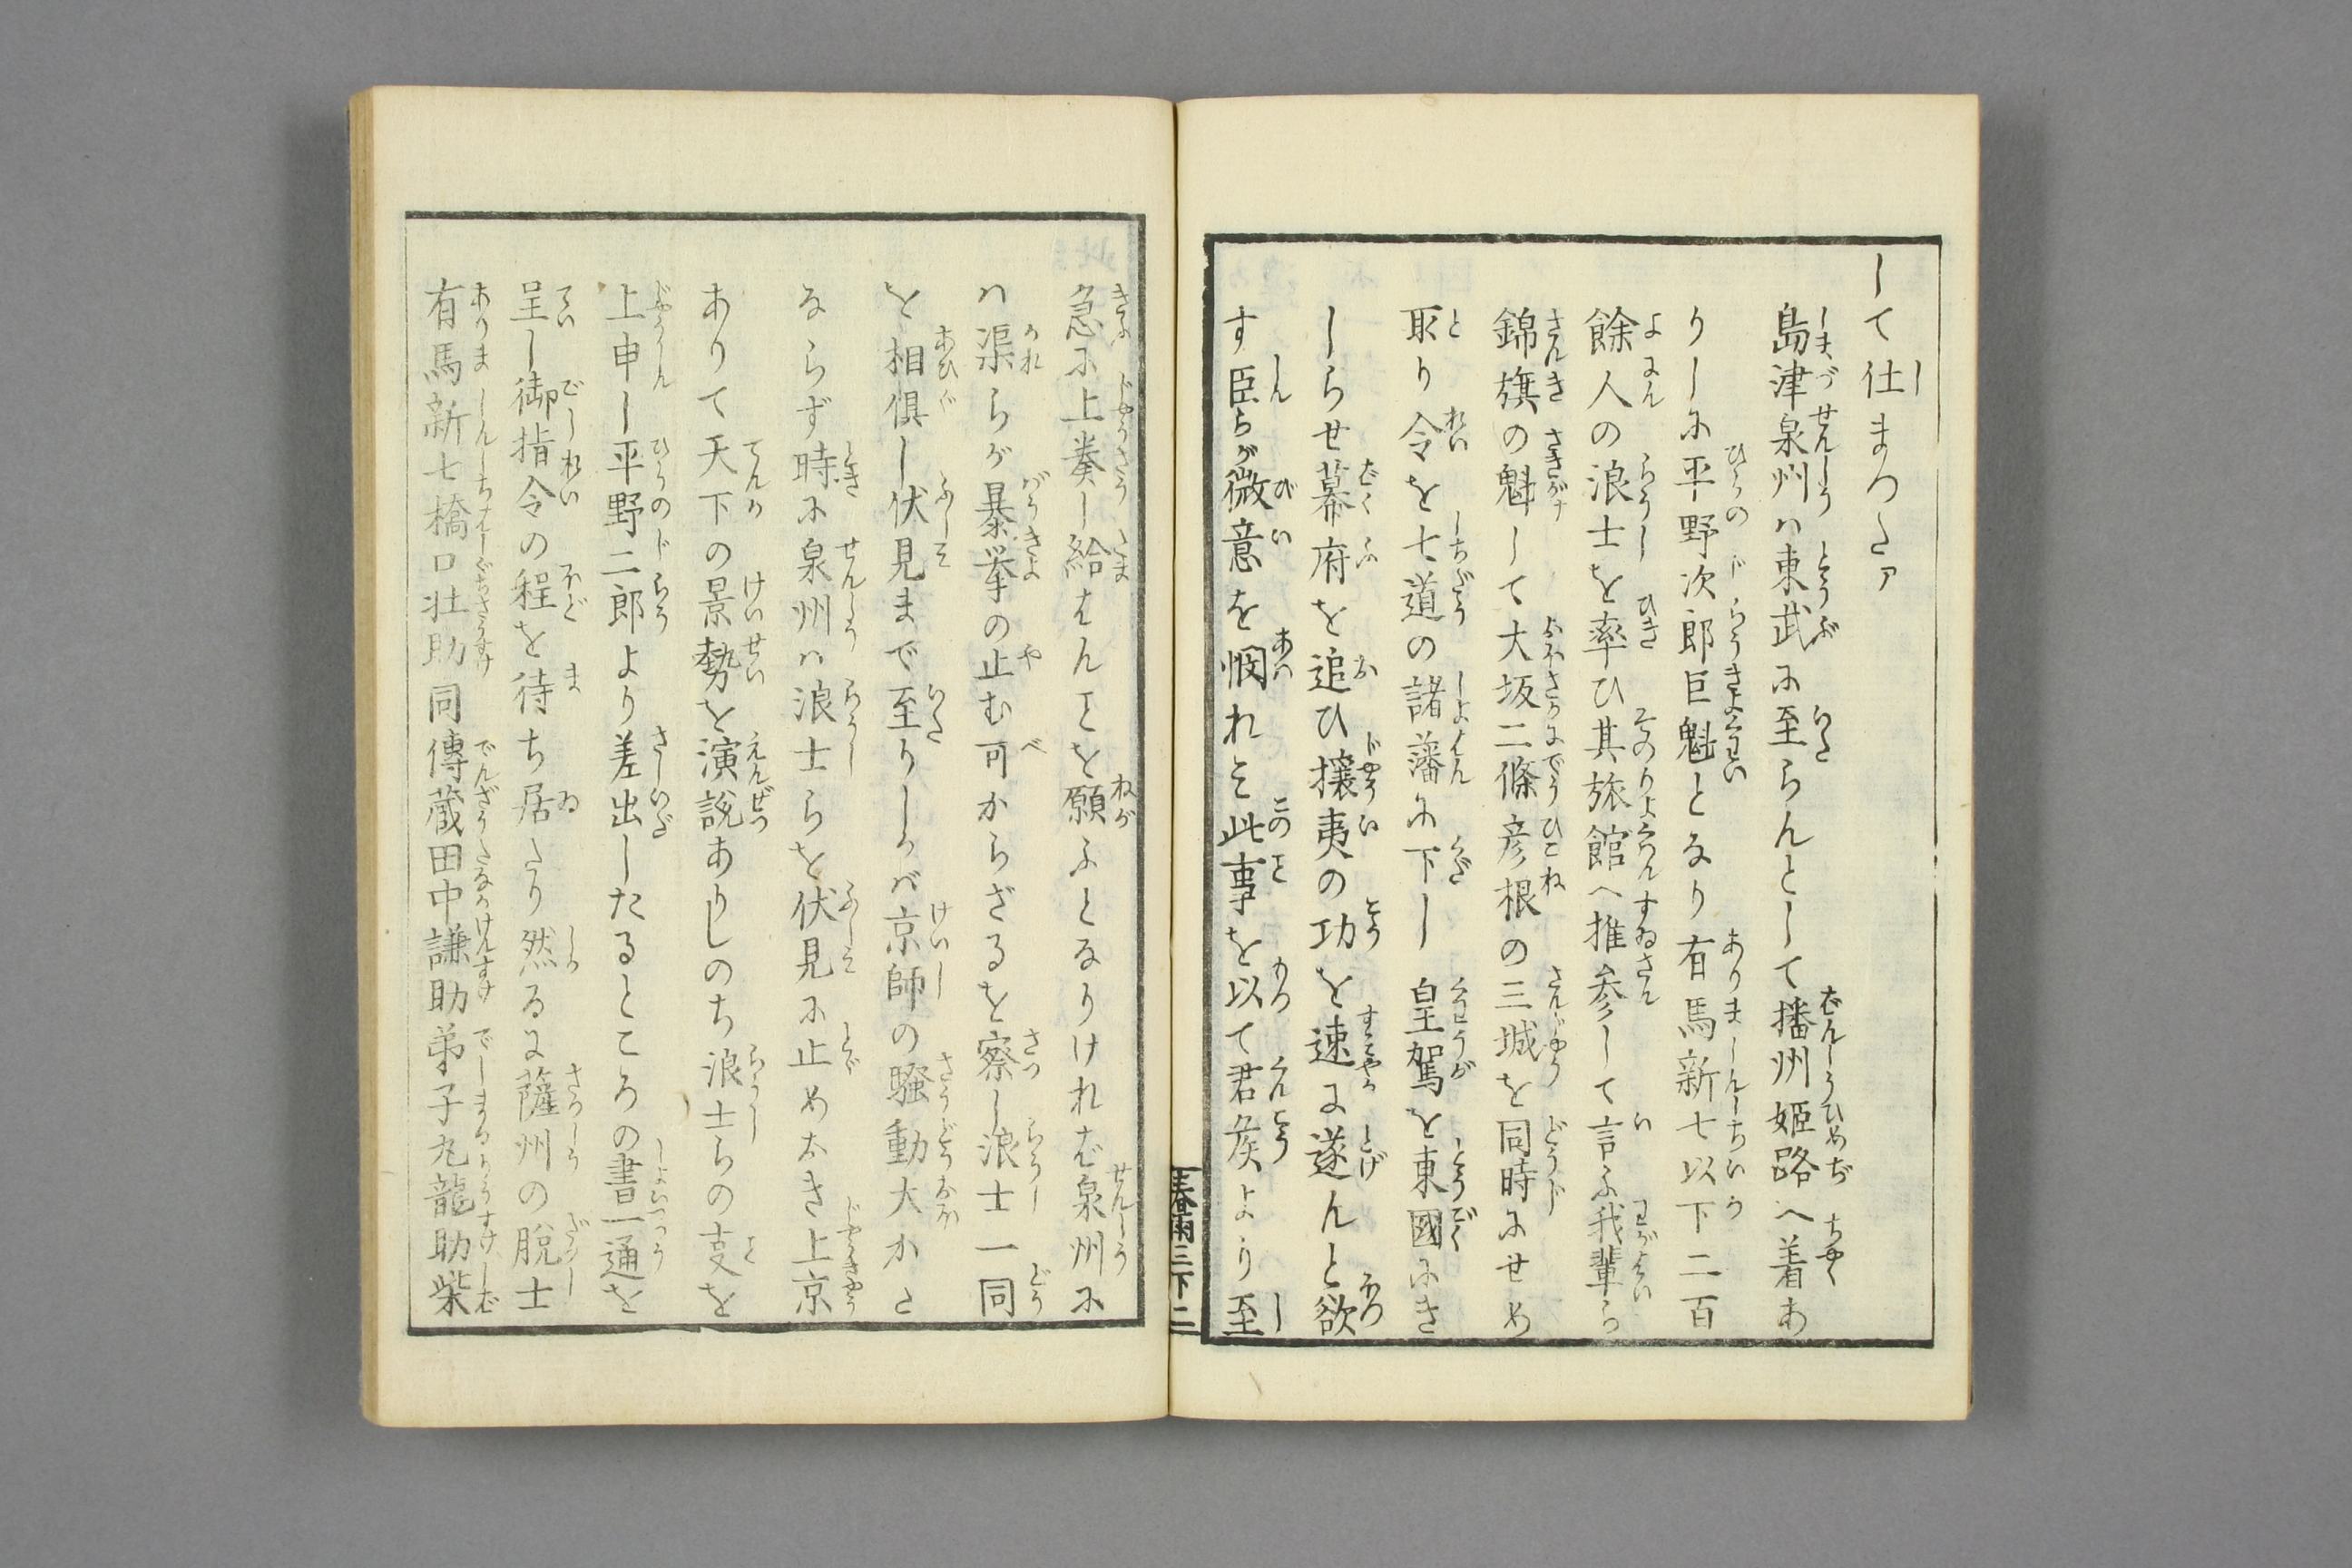 して仕まつたァ
島津泉州ハ東武に至らんとして播州姫路へ着あ
りしに平野次郎巨魁となり有馬新七以下二百
餘人の浪士を率ひ其旅館へ推参して言ふ我輩ら
錦旗の魁して大坂二條彦根の三城を同時にせめ
取り令を七道の諸藩に下し 皇駕を東國にき
しらせ幕府を追ひ攘夷の功を速に遂んと欲
す臣らが微意を憫れミ此事を以て君矦より至
急に上奏し給はんことを願ふとなりければ泉州に
ハ渠らが暴挙の止む可からざるを察し浪士一同
を相倶し伏見まで至りしかバ京師の騒動大かた
ならず時に泉州ハ浪士らを伏見に止めおき上京
ありて天下の景勢を演説ありしのち浪士らの㕝を
上申し平野二郎より差出したるところの書一通を
呈し御指令の程を待ち居たり然るに薩州の脱士
有馬新七橋口壮助同傳蔵田中謙助弟子丸龍助柴
春雨三下 二